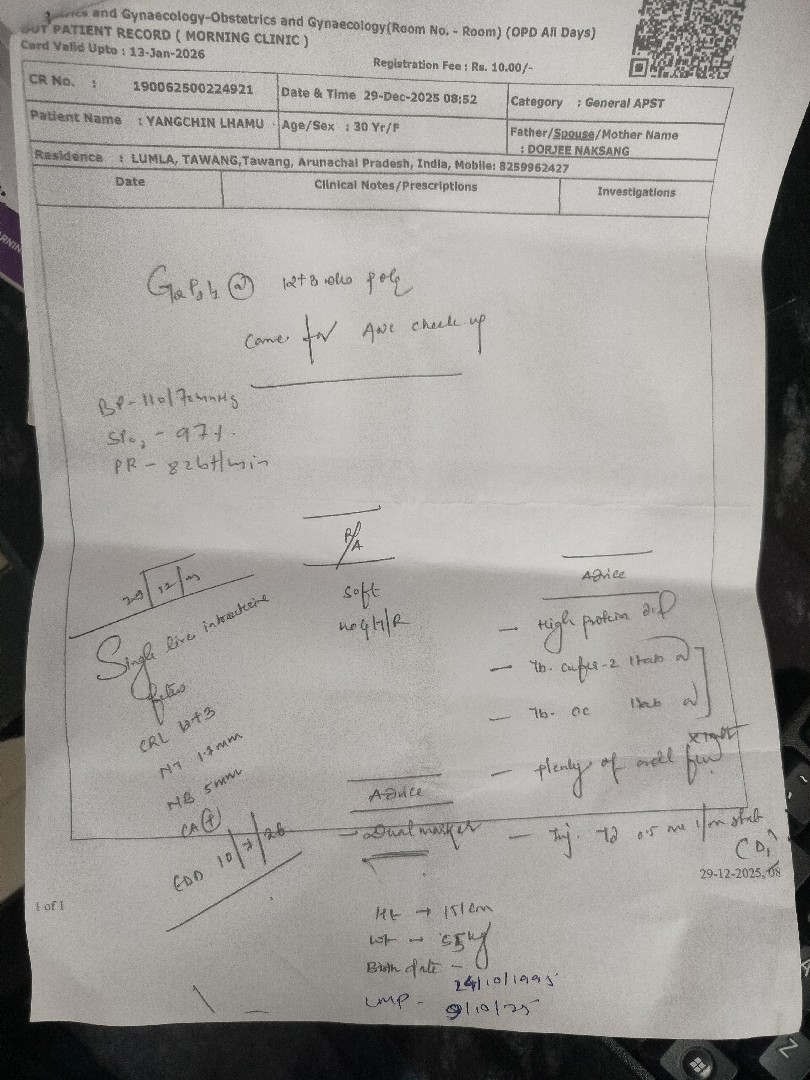 and Gynaecology-Obstetrics and Gynaecology(Room No. - Room) (OPD All Days)
OUT PATIENT RECORD ( MORNING CLINIC )
Card Valid Upto : 13-Jan-2026
Registration Fee : Rs. 10.00/-
CR No. : 190062500224921
Date & Time 29-Dec-2025 08:52
Category : General APST
Patient Name : YANGCHIN LHAMU
Age/Sex : 30 Yr/F
Father/Spouse/Mother Name
: DORJEE NAKSANG
Residence : LUMLA, TAWANG,Tawang, Arunachal Pradesh, India, Mobile: 8259962427
Date
Clinical Notes/Prescriptions
Investigations
@ 12+3 wks
Came for ANC check up
BP-110/70mmHg
SPO2 - 97%
PR - 82bt/min
P/A
soft
no G/T/R
29/12/
Single live intrauterine
fetus
CRL 12+3
NT 1.7mm
NB 5mm
CA (+)
EDD 10/7/26
Advice
- High protein
- Tb. 1tab
- Tb. OC 1tab
- plenty of oral
Advice
- Dual marker
- Inj. Td 0.5 ml I/m stat
29-12-2025, 08
1 of 1
Ht → 151cm
wt → 55kg
Birth date - 24/10/1995
LMP - 9/10/25